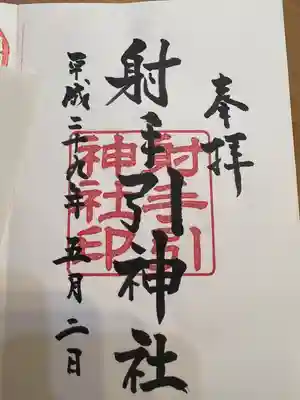 奉拝
射手引神社
射手引
神社印
平成二十九年五月二日